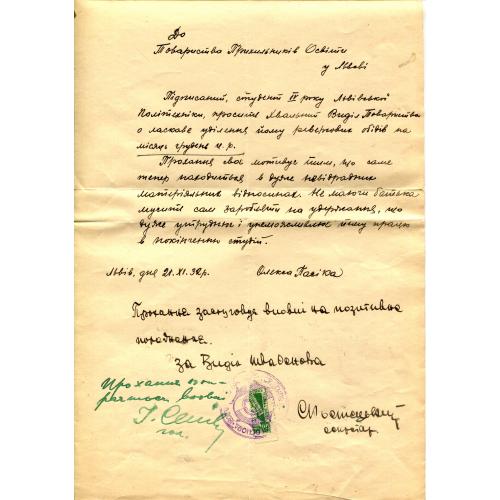 До
Товариства Прихильників Освіти
у Львові
Підписаний, студент IV року Львівської
Політехніки, просить Хвальний Виділ Товариства
о ласкаве уділення йому резервових обідів на
місяць грудень ц.р.
Прохання своє мотивує тим, що саме
тепер находиться в дуже невідрадних
матеріяльних відносинах. Не маючи батька
мусить сам заробляти на удержання, що
дуже утруднює і унеможливлює йому працю
в покінченню студій.
Львів, дня 21.XI.32р. Олекса Пасіка
Прохання заслуговує вповні на позитивне
За Виділ
Прохання
секретар.
гол.